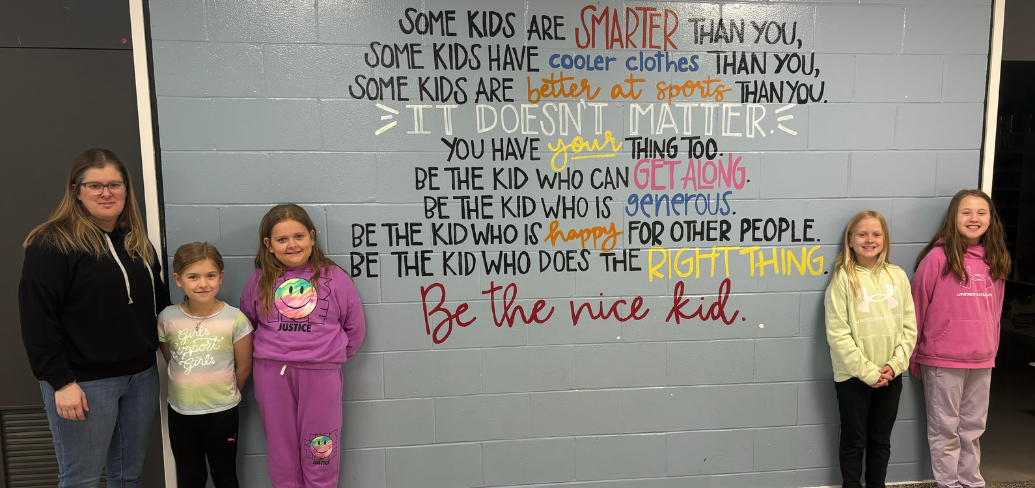 SOME KIDS ARE SMARTER THAN YOU,
SOME KIDS HAVE cooler clothes THAN YOU,
SOME KIDS ARE better at sports THAN YOU.
IT DOESN'T MATTER.
YOU HAVE your THING TOO.
BE THE KID WHO CAN GET ALONG.
BE THE KID WHO IS generous.
BE THE KID WHO IS happy FOR OTHER PEOPLE.
BE THE KID WHO DOES THE RIGHT THING.
Be the nice kid.
Girls
Support
Girls
JUSTICE
JUSTICE
UNDER ARMOUR